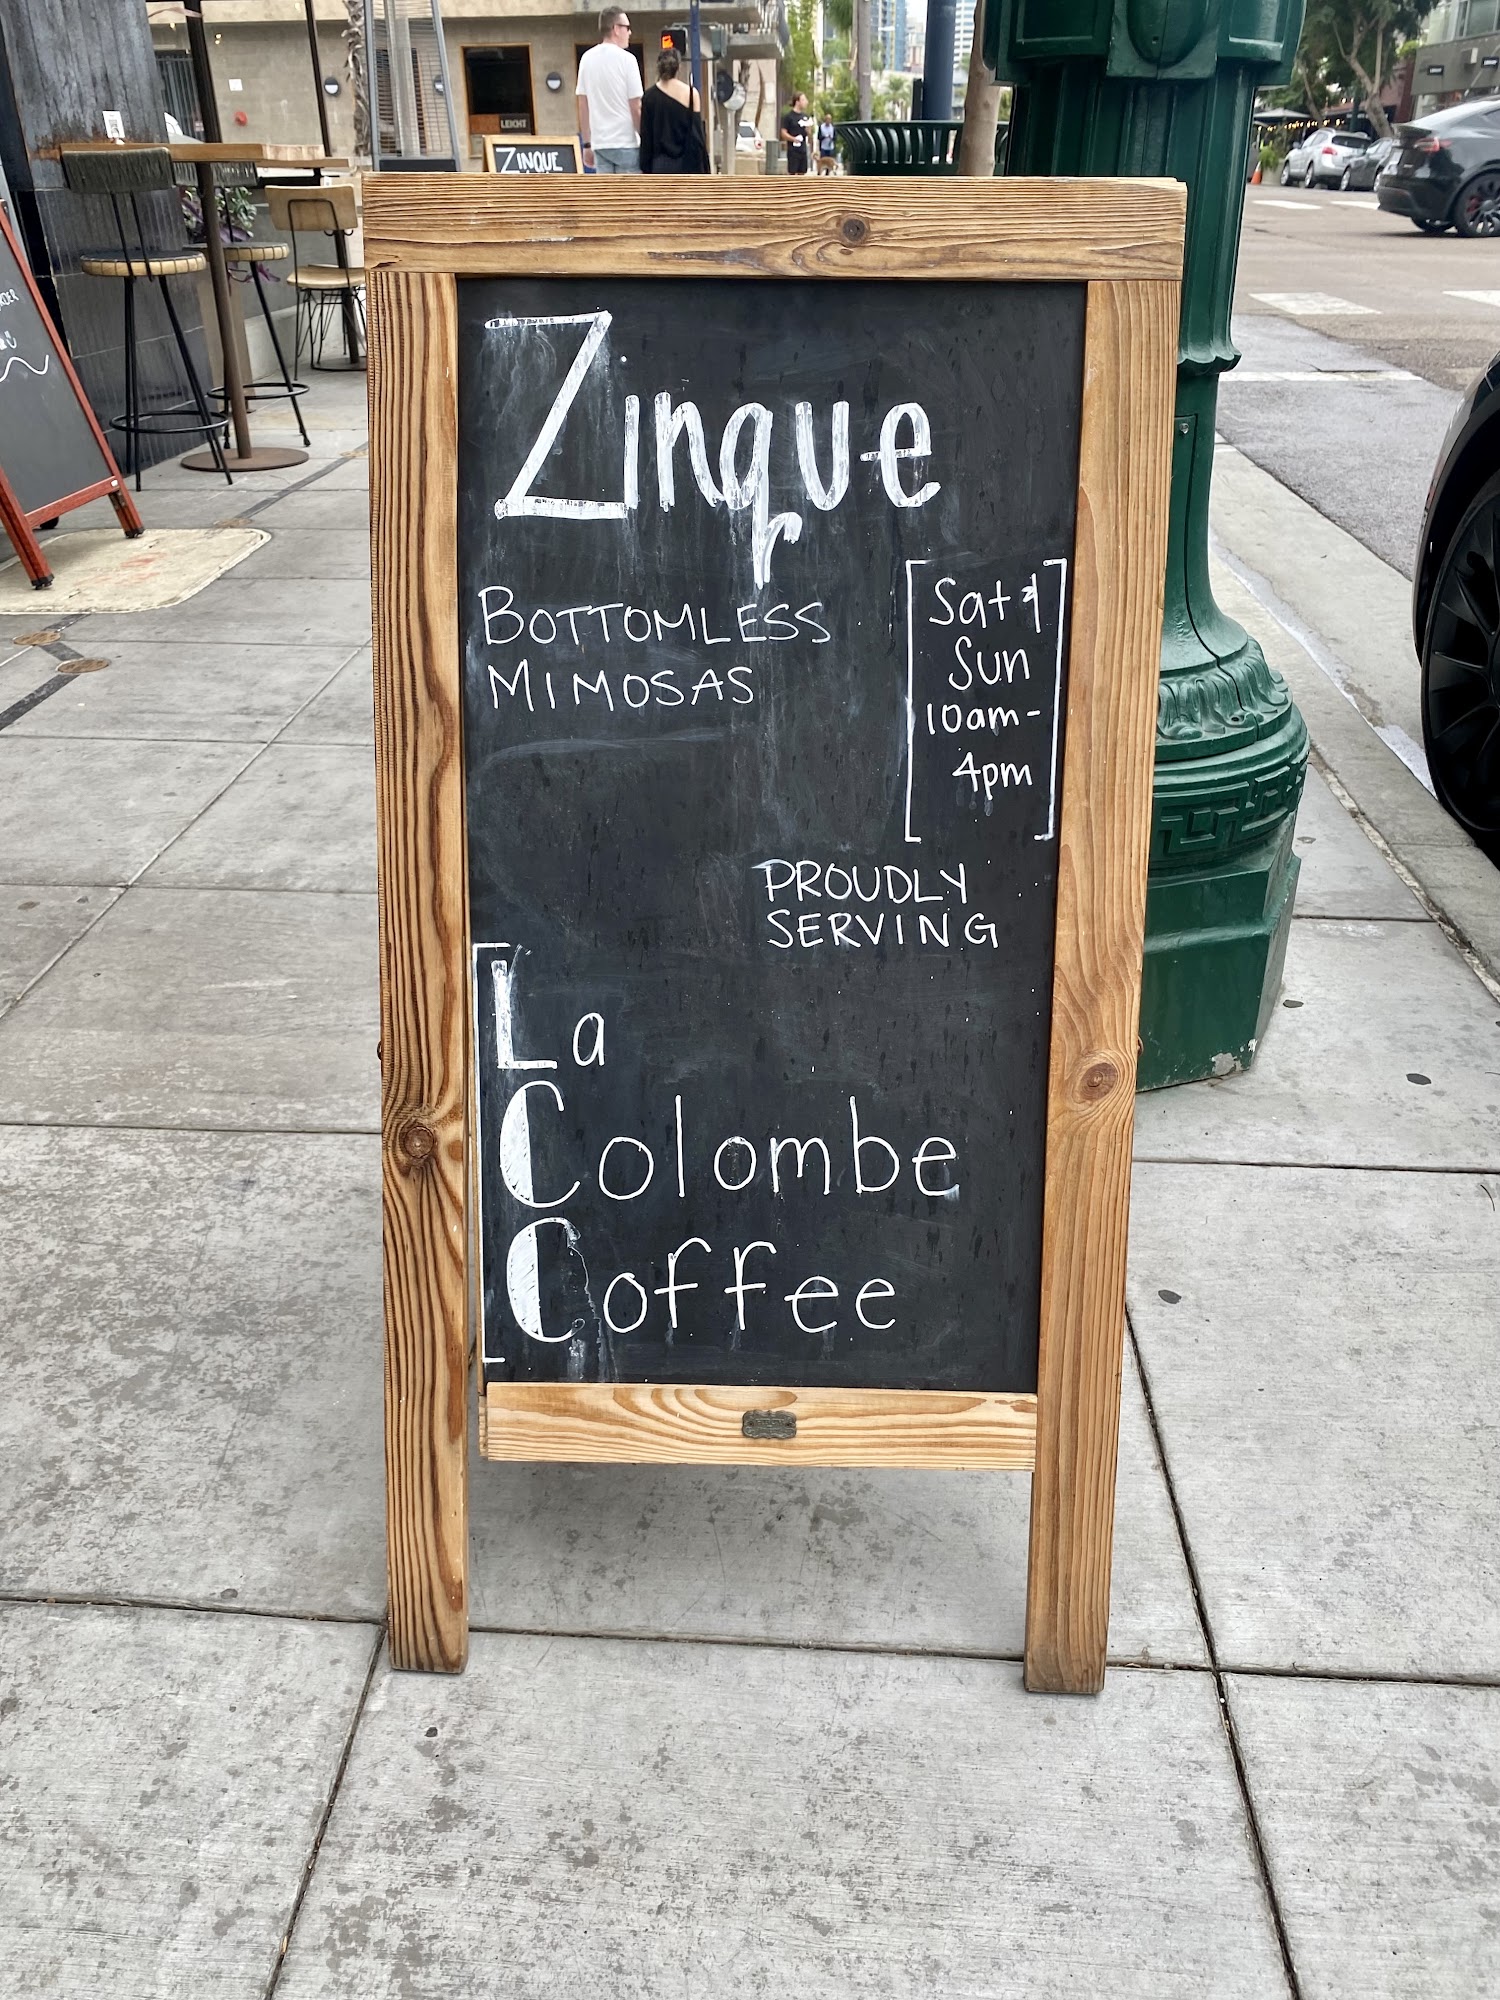 LEICHT
ZINQUE
Zinque
BOTTOMLESS
MIMOSAS
Sat &
Sun
10am-
4pm
PROUDLY
SERVING
La
Colombe
Coffee